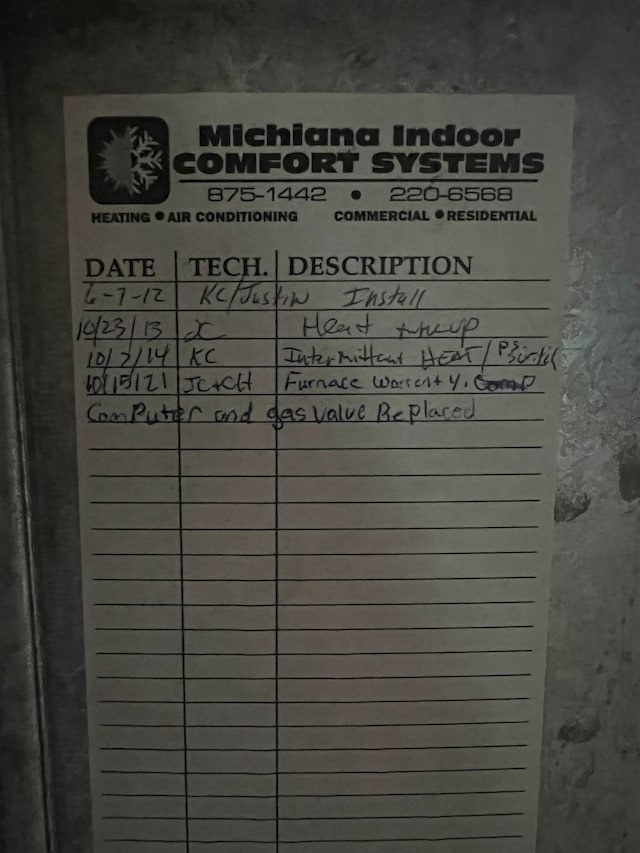 Michiana Indoor
COMFORT SYSTEMS
875-1442 • 220-6568
HEATING • AIR CONDITIONING COMMERCIAL • RESIDENTIAL
DATE TECH. DESCRIPTION
6-7-12 KC/Justin Install
10/23/13 Heat tuneup
10/2/14 KC Intermittent HEAT/
10/15/21 JC+CH Furnace Warrenty.
Computer and gas valve Replaced